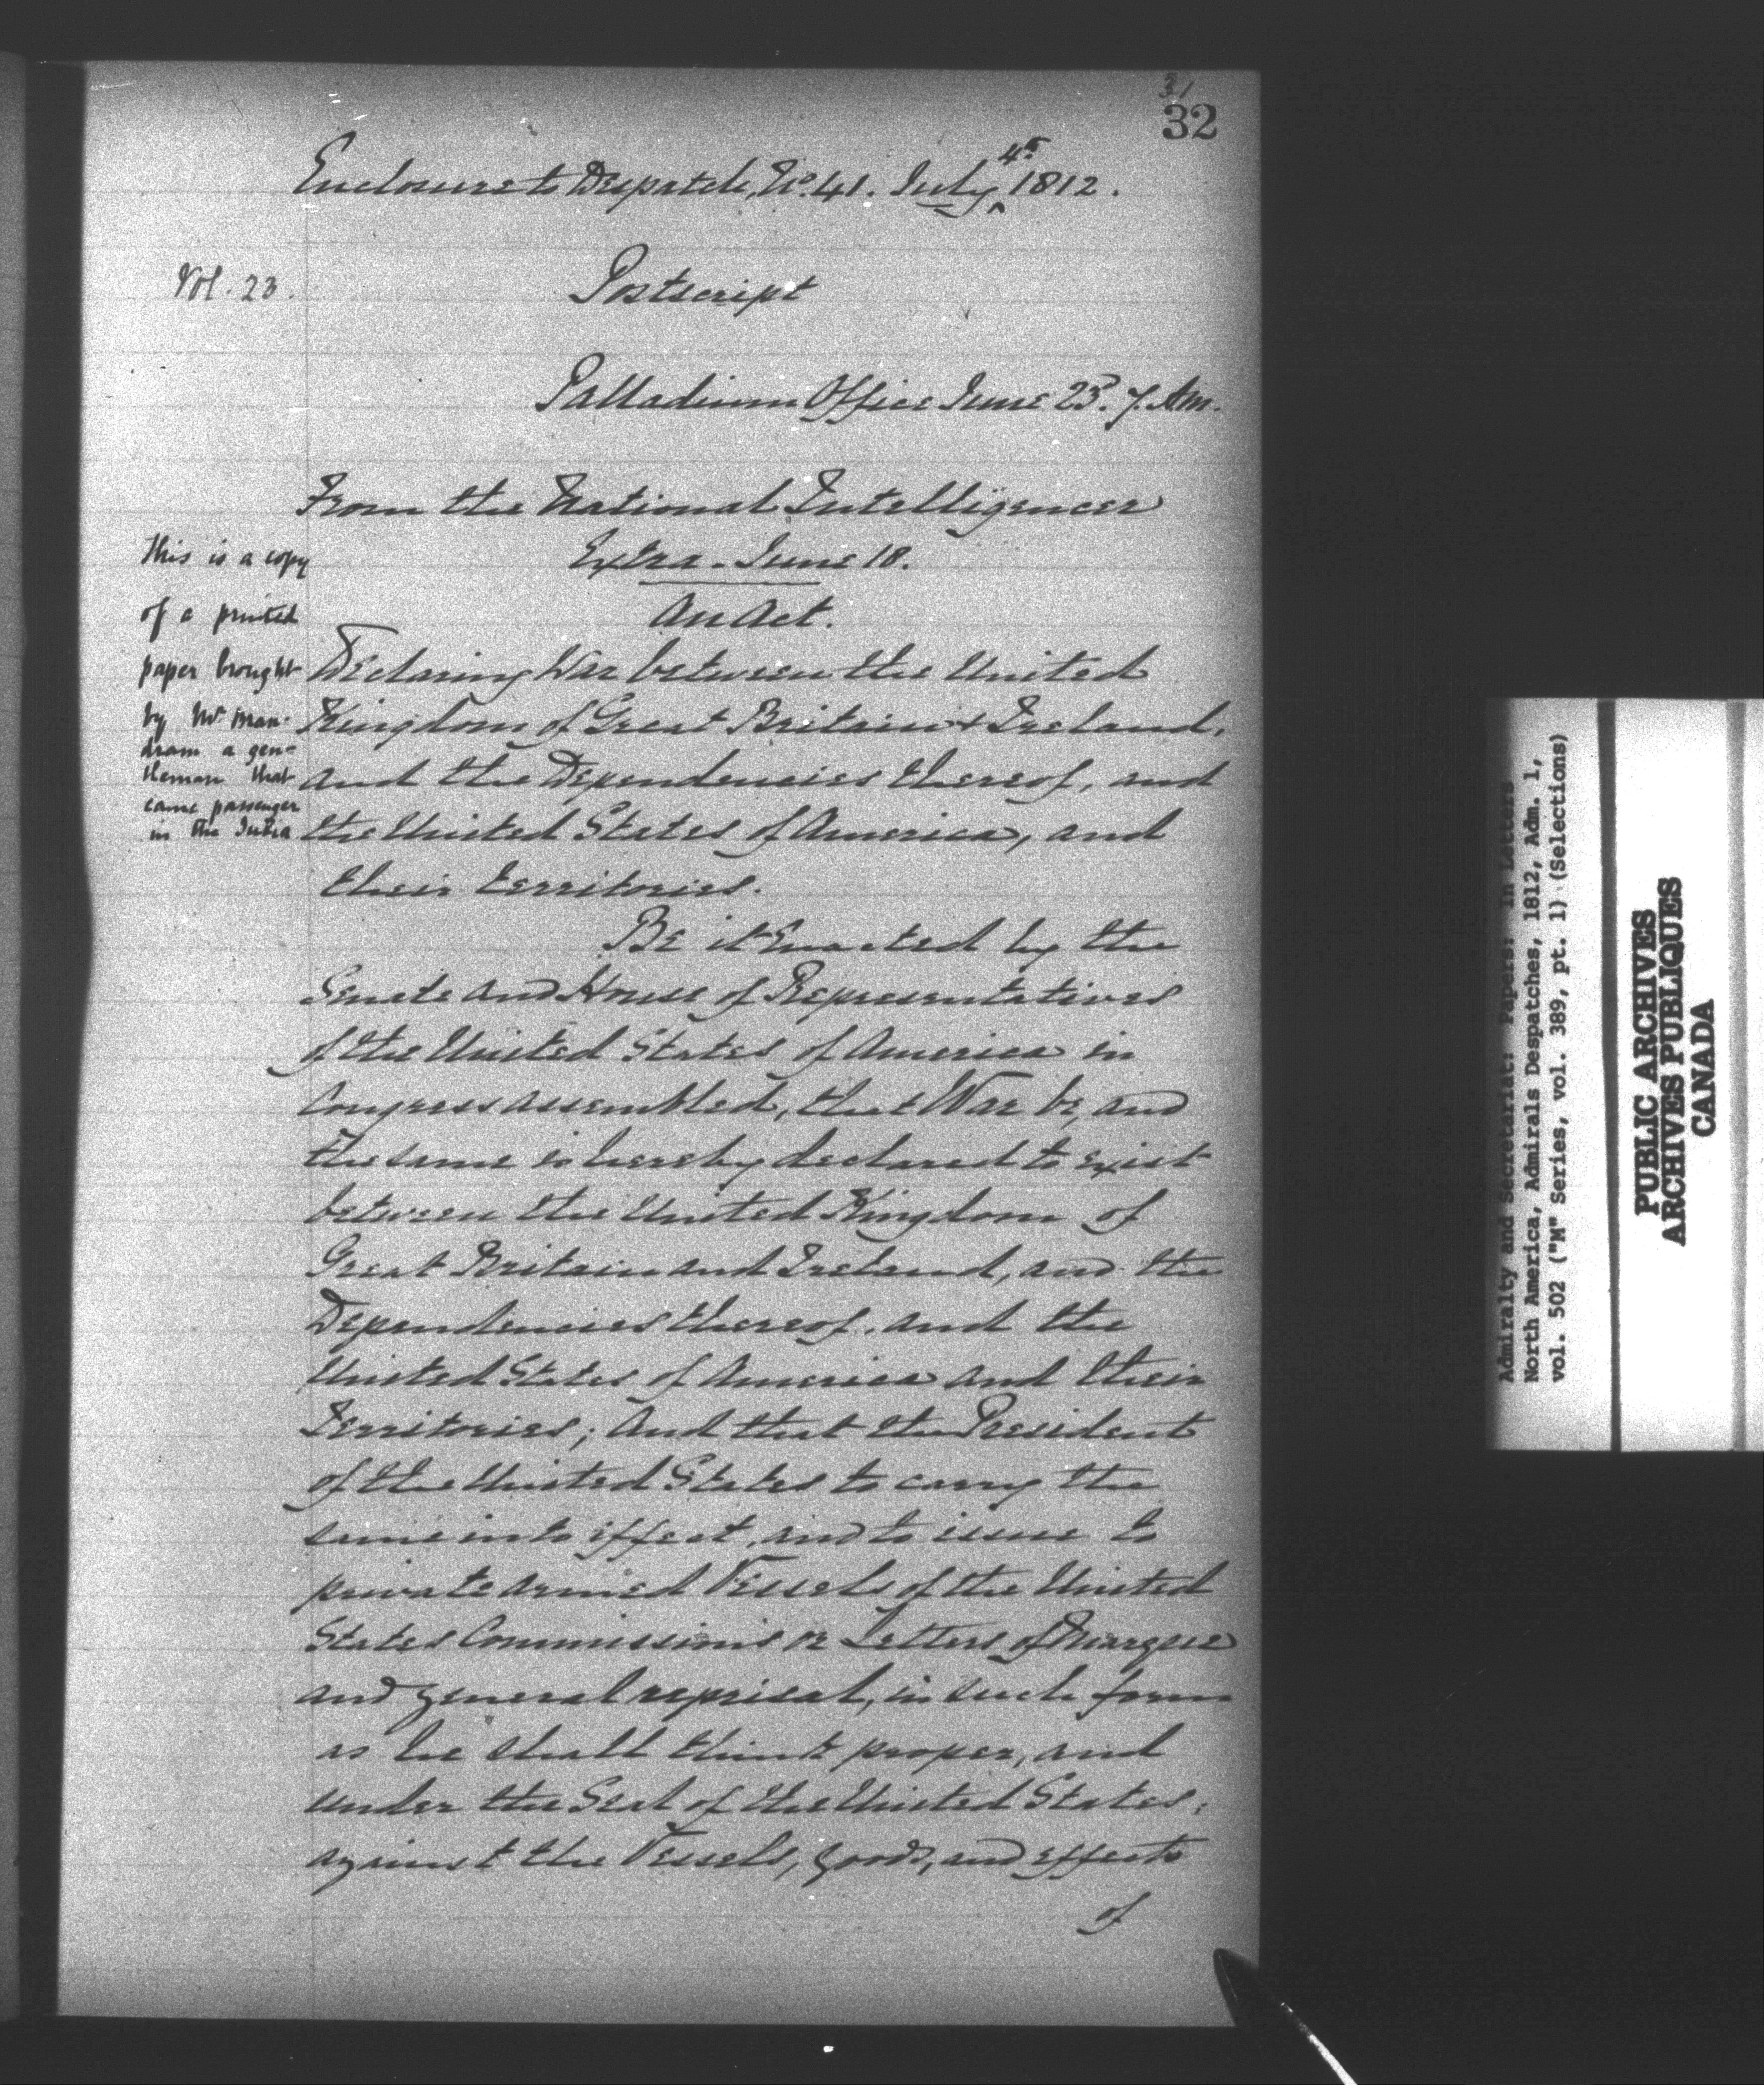 31
32
Enclosure to Despatch, No. 41. July 4th 1812.
Vol. 23.
Postscript
Palladium Office June 23d. 7. Am.
From the National Intelligencer
Extra. June 18.
An Act.
This is a copy
of a printed
paper brought
by Mr Man-
dram a gen-
tleman that
came passenger
in the
Declaring War between the United
Kingdom of Great Britain & Ireland,
and the Dependencies thereof, and
the United States of America, and
their territories.
Be it Enacted by the
Senate and House of Representatives
of the United States of America in
Congress assembled, that War be, and
the same is hereby declared to exist
between the United Kingdom of
Great Britain and Ireland, and the
Dependencies thereof, and the
United States of America and their
Territories; And that the President
of the United States to carry the
same into effect, and to issue to
private armed Vessels of the United
States Commissions or Letters of Marque
and general reprisal, in such form
as he shall think proper, and
under the Seal of the United States,
against the Vessels, goods, and effects
of
Admiralty and Secretariat: Papers: in Letters
North America, Admirals Despatches, 1812, Adm. 1,
vol. 502 ("M" Series, vol. 389, pt. 1) (Selections)
PUBLIC ARCHIVES
ARCHIVES PUBLIQUES
CANADA